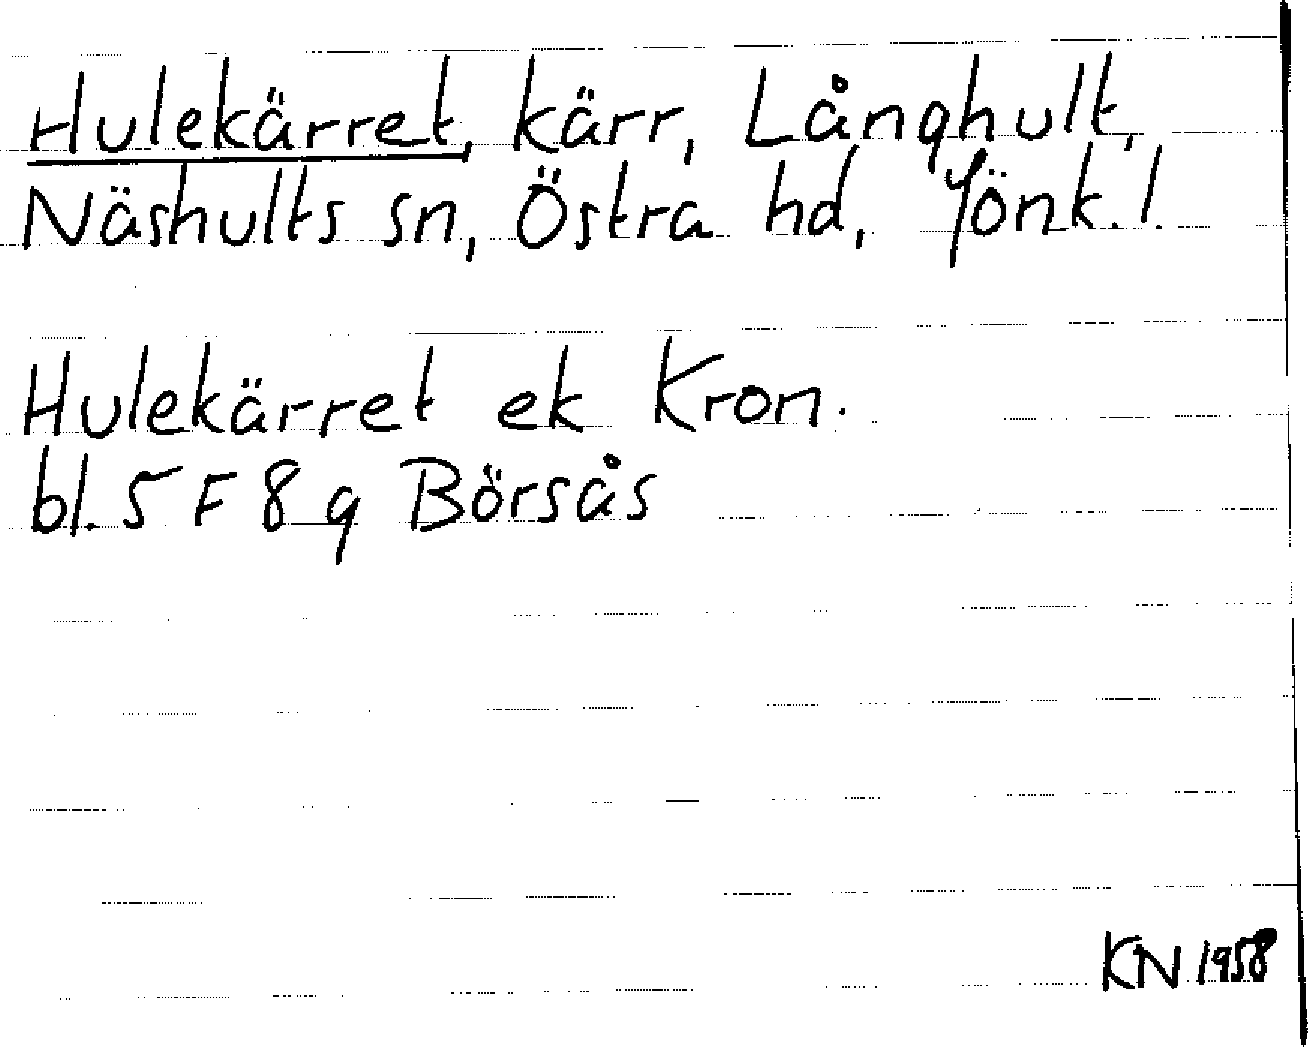 Hulekärret, kärr, Långhult,
Näshults sn, Östra hd, Jönk.l.
Hulekärret ek Kron.
bl. 5 F 8 g Börsås
KN 1958